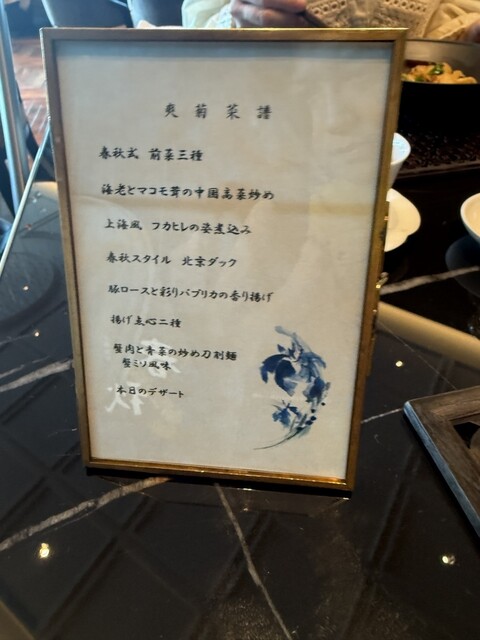 爽菊菜譜
春秋式 前菜三種
海老とマコモ茸の中国高菜炒め
上海風 フカヒレの姿煮込み
春秋スタイル 北京ダック
豚ロースと彩りパプリカの香り揚げ
揚げ点心二種
蟹肉と青菜の炒め刀削麺
蟹ミソ風味
本日のデザート
春秋